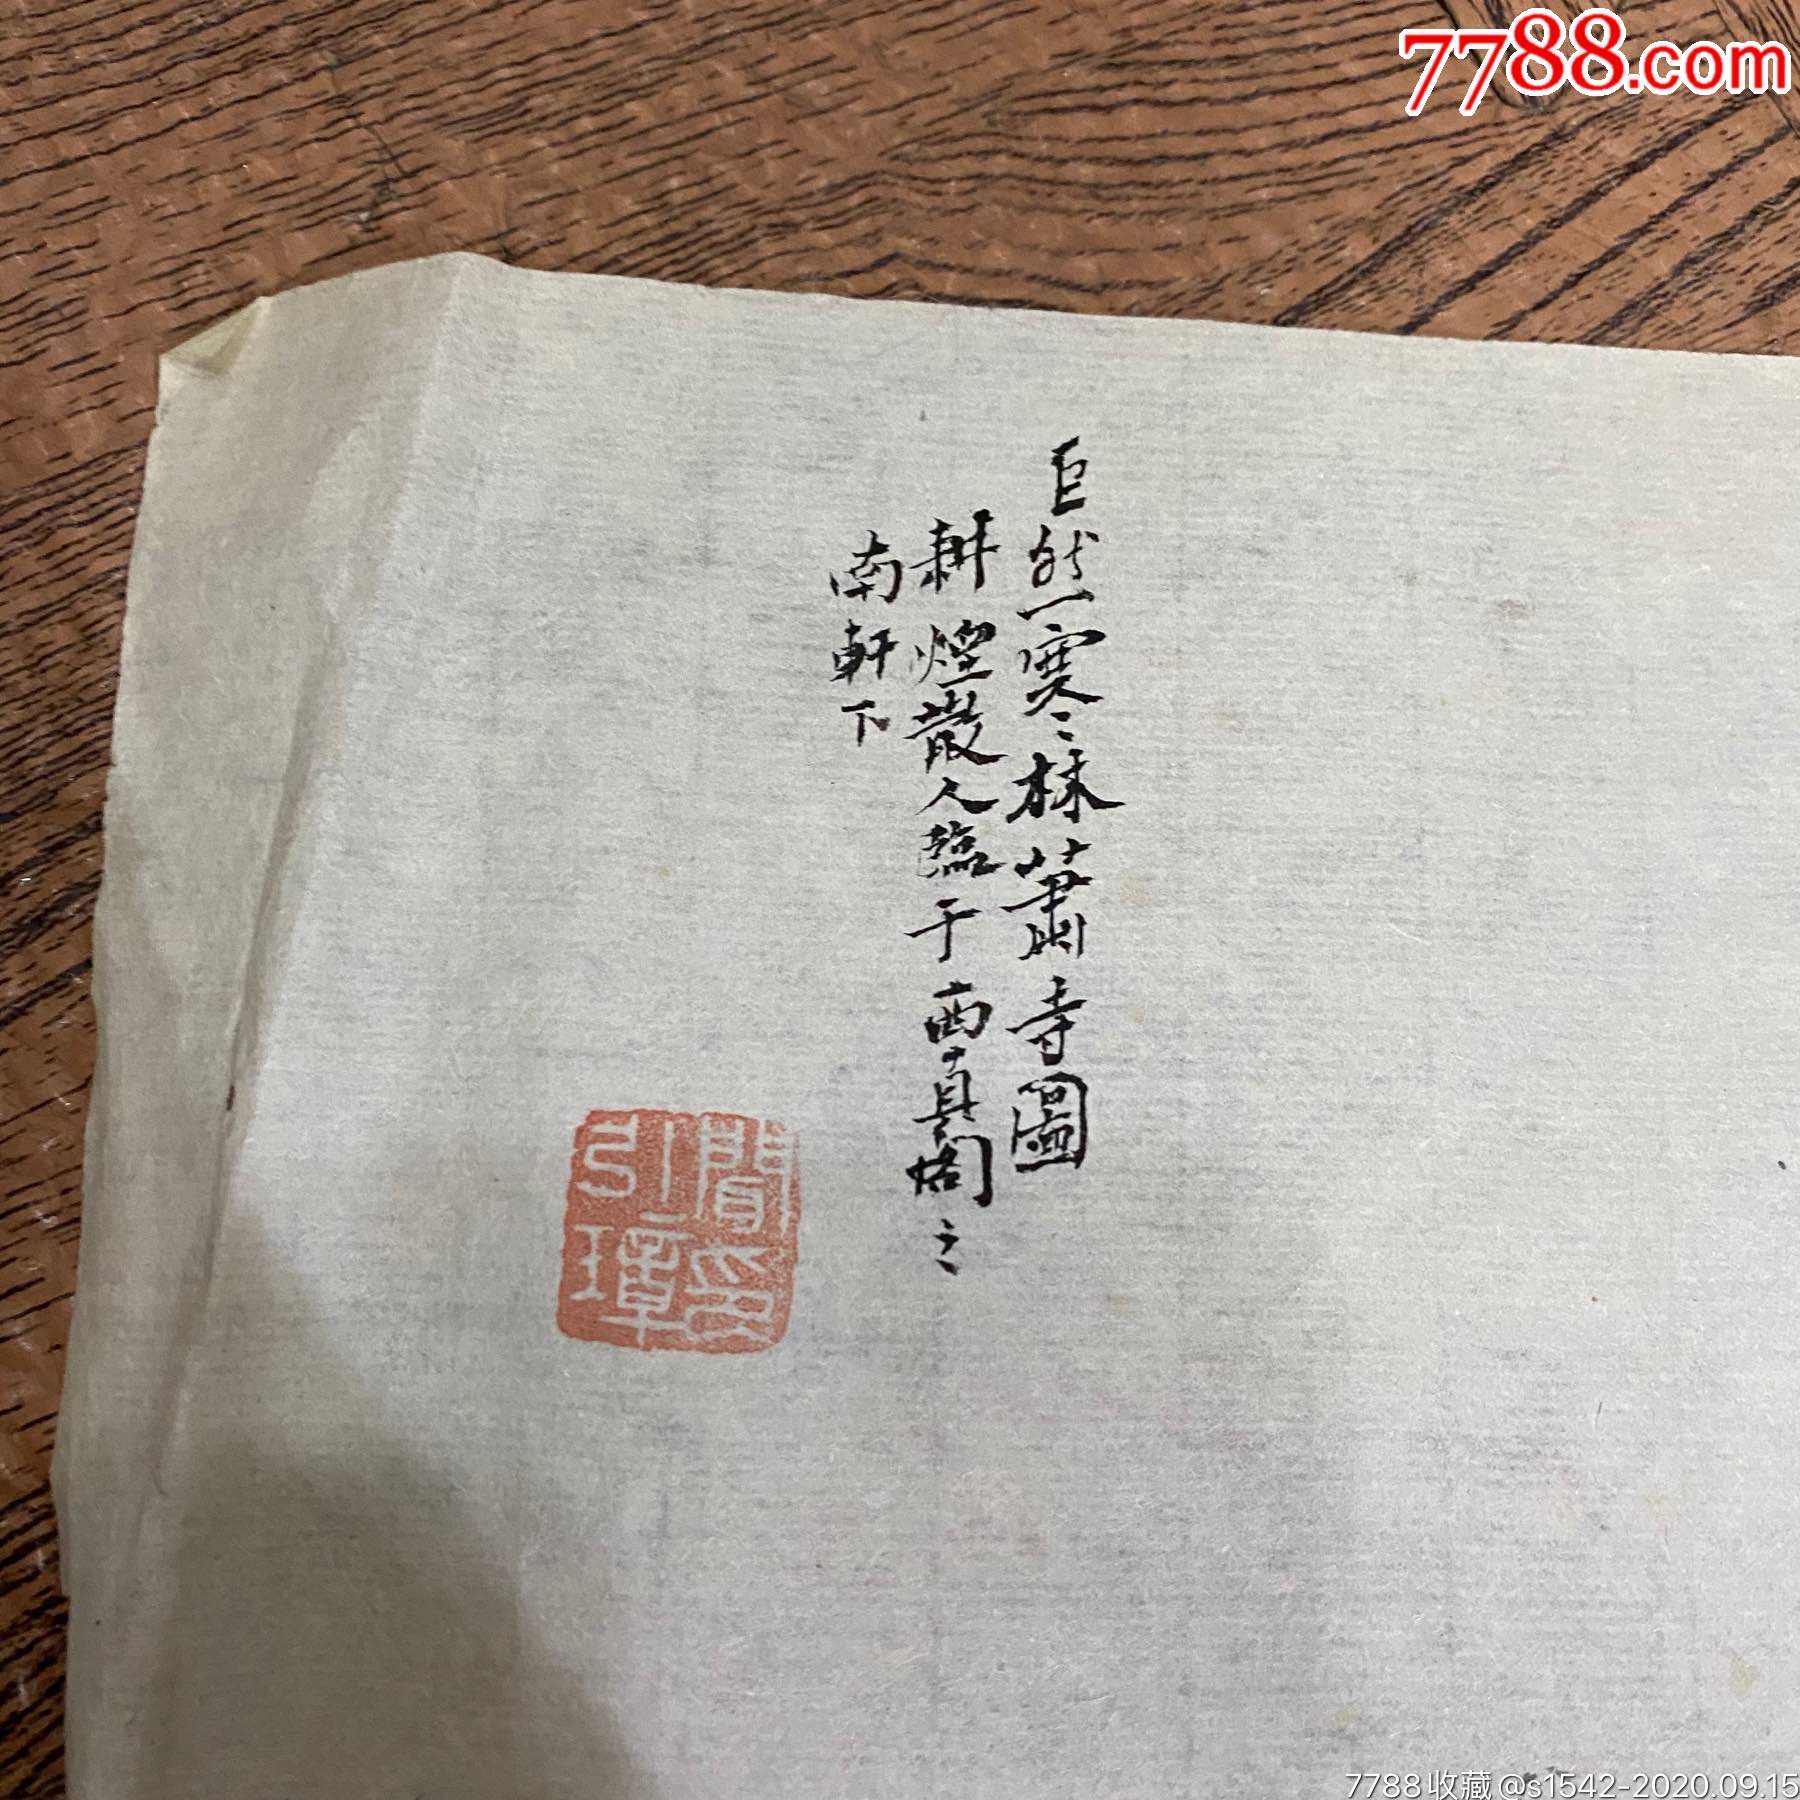 7788.com
巨然寒林蕭寺圖
耕煙散人臨于西真閣之
南軒下
7788收藏@s1542-2020.09.15